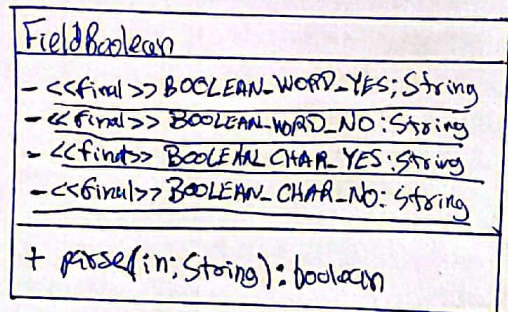 FieldBoolean
- <<final>> BOOLEAN_WORD_YES: String
- <<final>> BOOLEAN_WORD_NO: String
- <<final>> BOOLEAN_CHAR_YES: String
- <<final>> BOOLEAN_CHAR_NO: String
+ parse(in: String): boolean